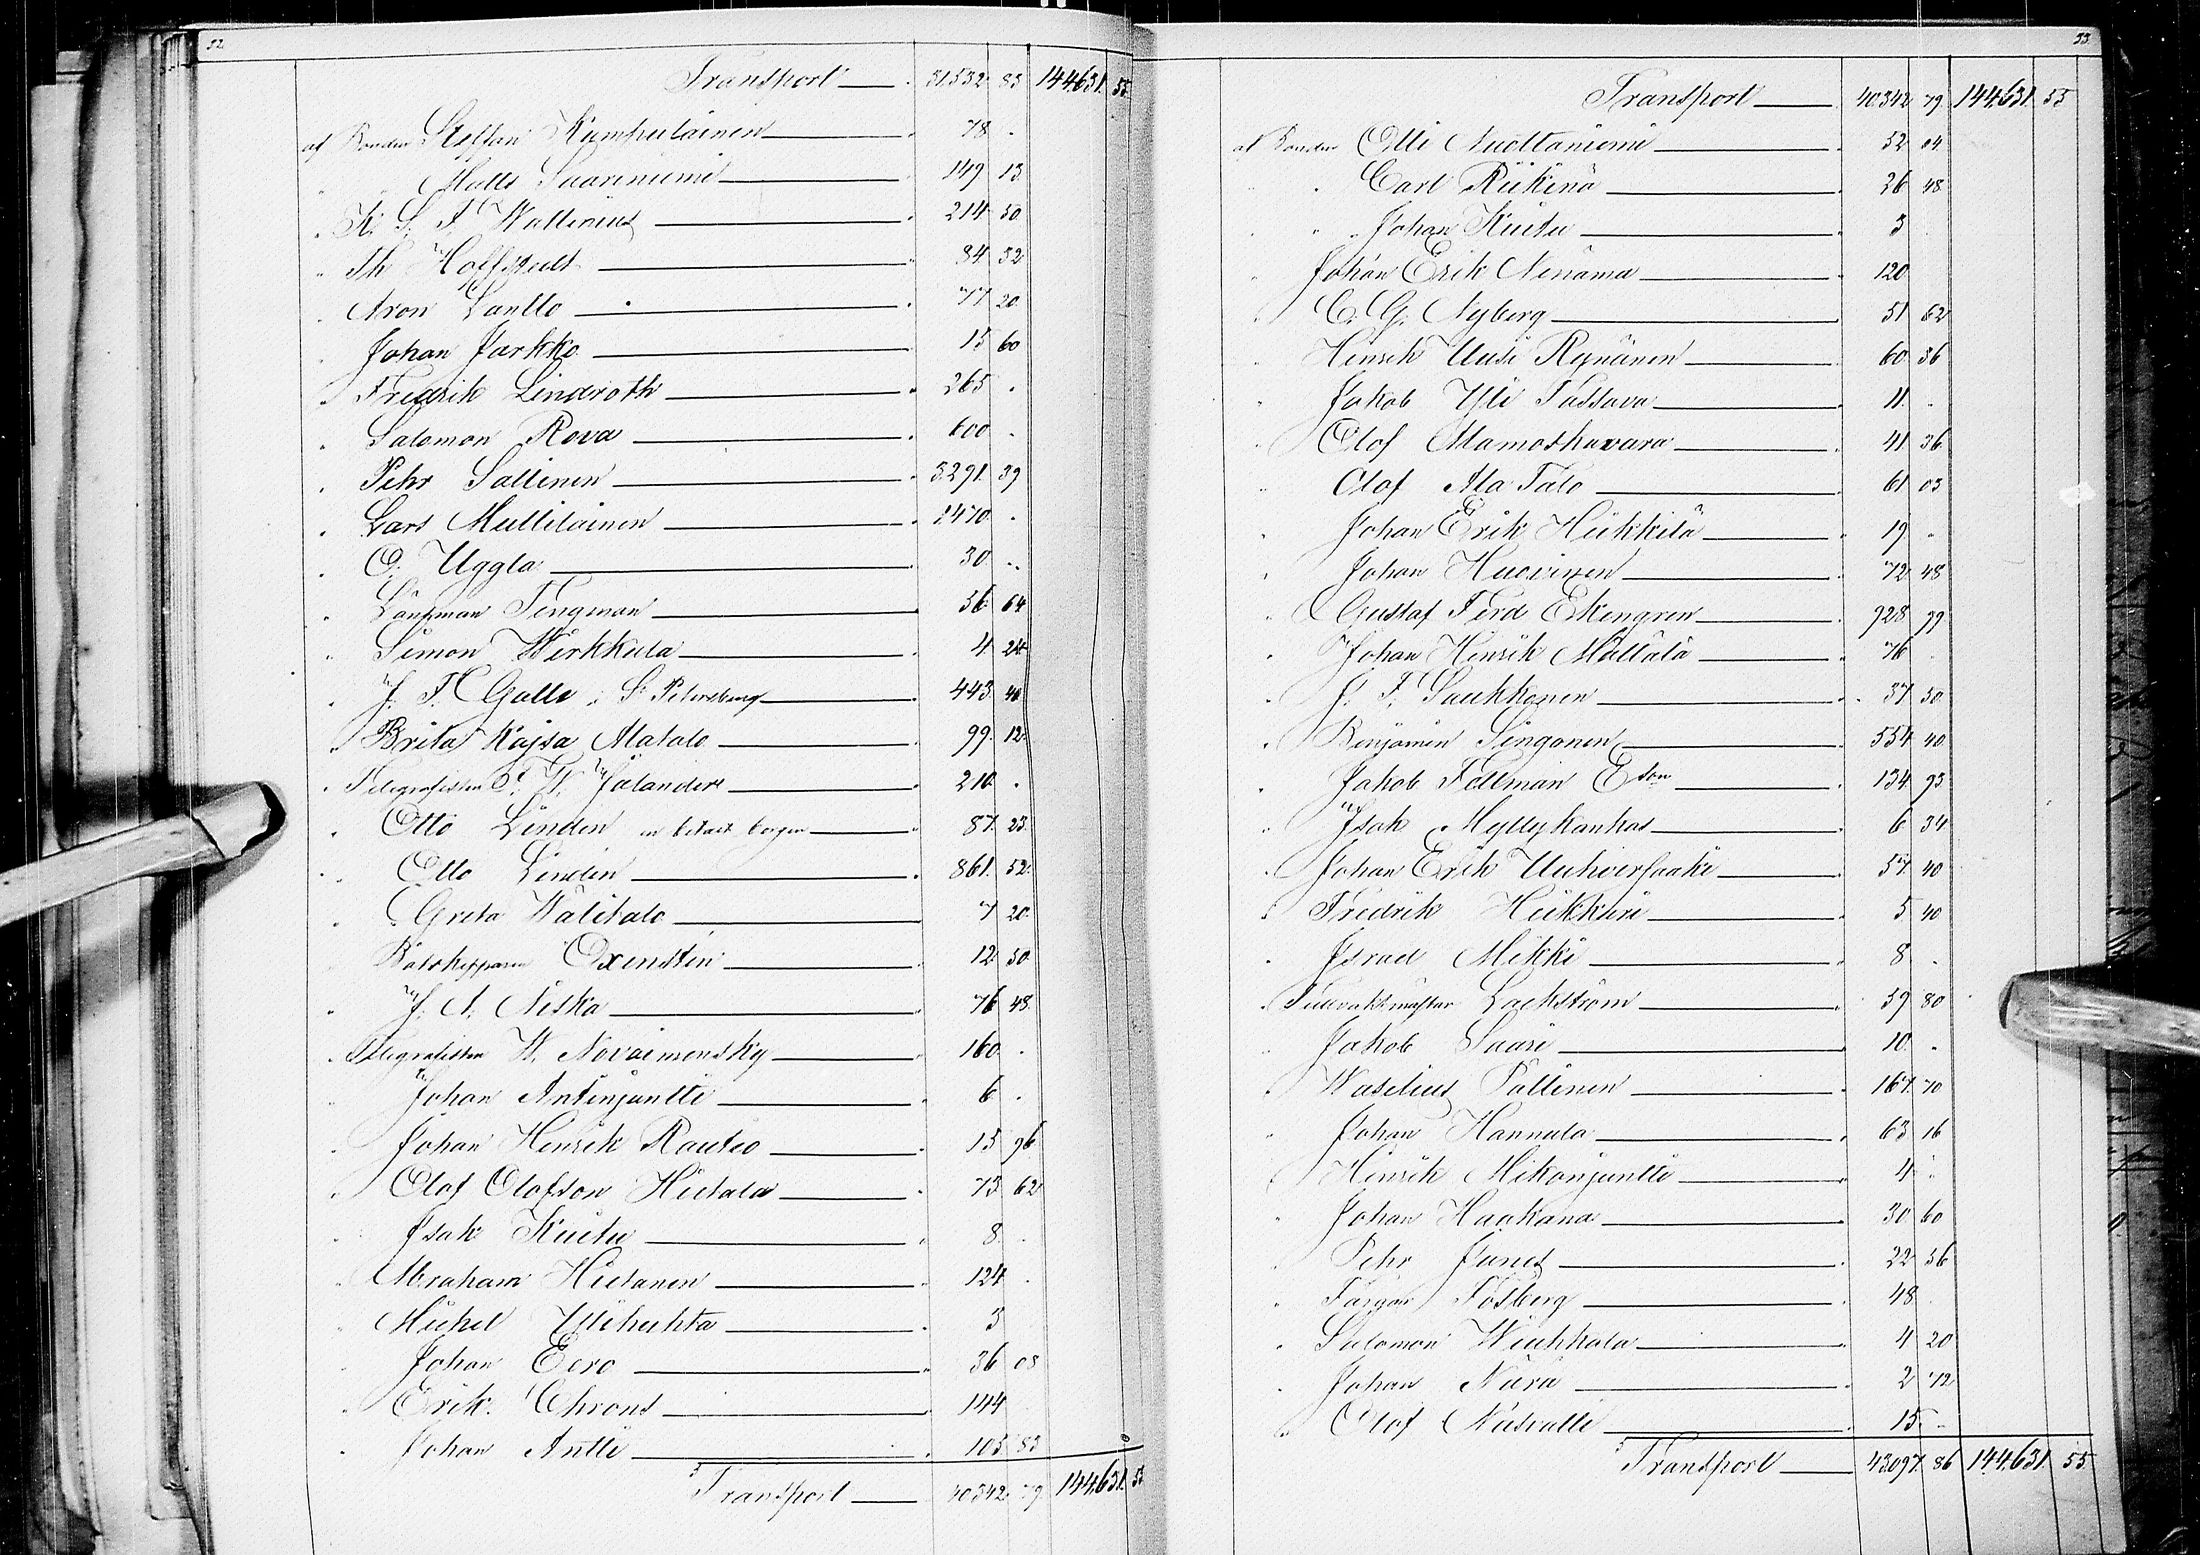 52
Transport 31.532 83 144.631. 55.
af Bonden Steffan Kumpulainen 78 "
" Matts Saariniemi 149 13
" K. S. F. Wallenius 214 50
" Th Hoffstedt 84 32
" Aron Lantto 77 20
" Johan Jarkko 15 60
" Fredrik Lindroth 265 "
" Salomon Rova 600 "
" Pehr Sallinen 3291. 39
" Lars Multilainen 2470 "
" O. Uggla 30 "
" Länsman Tengman 36 64
" Simon Wirkkula 4 24
" J. F. Galle, St Petersburg 443. 40
" Brita Kajsa Alatalo 99. 12
" Telegrafisten F. W. Jolander 210 "
" Otto Linden en betalt borgen 87. 23.
" Otto Linden 861. 52.
" Greta Wälitalo 7 20
Båtskepparen Oxensten 12 50
" J. A. Niska 76 48
" Telegrafisten W. Novaimensky 160 "
" Johan Antinjuntti 6 "
" Johan Henrik Rautio 15 96
" Olof Olofson Hietala 73 62
" Isak Kuitu 8 "
" Abraham Hietanen 124 "
" Michel Yliheikta 3
" Johan Eero 36 08
" Erik Chrons 144
" Johan Antti 103 83
Transport 40342 79 144.631. 55
33
Transport 40342 79 144.631 55
af Bonden Olli Nuottaniemi 52 04
" " Carl Riikinä 26 48
" " Johan Kuitu 3
Johan Erik Ninämä 120
" C. G. Nyberg 51 62
" Henrik Uusi Rynänen 60 36
" Jakob Yli Tassava 11. "
" Olof Mamoskavara 41 36
" Olof Ala Talo 61 03
" Johan Erik Heikkilä 19 "
" Johan Huovinen 72 48
" Gustaf Ferd Ekengren 928 99
" Johan Henrik Mattala 76 "
" J. F. Saukkonen 37 50
" Benjamin Singonen 554 40
" Jakob Fellman Eson 134 93
" Isak Myllykankas 6 34
" Johan Erik Uuhverjaaki 57. 40
" Fredrik Heikkuri 5 40
" Israel Mikki 8 "
" Tullvaktmästar Lackström 59 80
" Jakob Saari 10 "
" Wasilius Pallinen 167. 70
" Johan Hannula 63 16
" Henrik Mikonjuntti 4 "
" Johan Haakana 30 60
" Pehr Junes 22 56
" Färgar Fosberg 48
" Salomon Wiukkala 4 20
" Johan Närä 2 72
" Olof Nusvalli 15 "
Transport 43.097. 86 144.631. 55